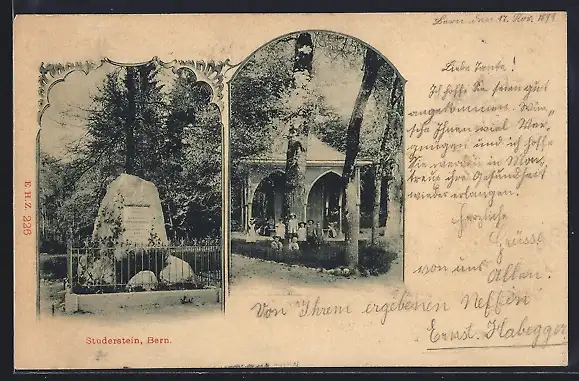 Bern den 17. Nov. 1899
Liebe Tante!
Ich hoffe Sie seien gut
angekommen. Wün-
sche Ihnen viel Ver-
gnügen und ich hoffe
Sie werden in Mon-
treux ihre Gesundheit
wieder erlangen!
Herzliche
Grüsse
von uns Allen.
Von Ihrem ergebenen Neffen
Ernst Habegger
E. H. Z. 226
Studerstein, Bern.